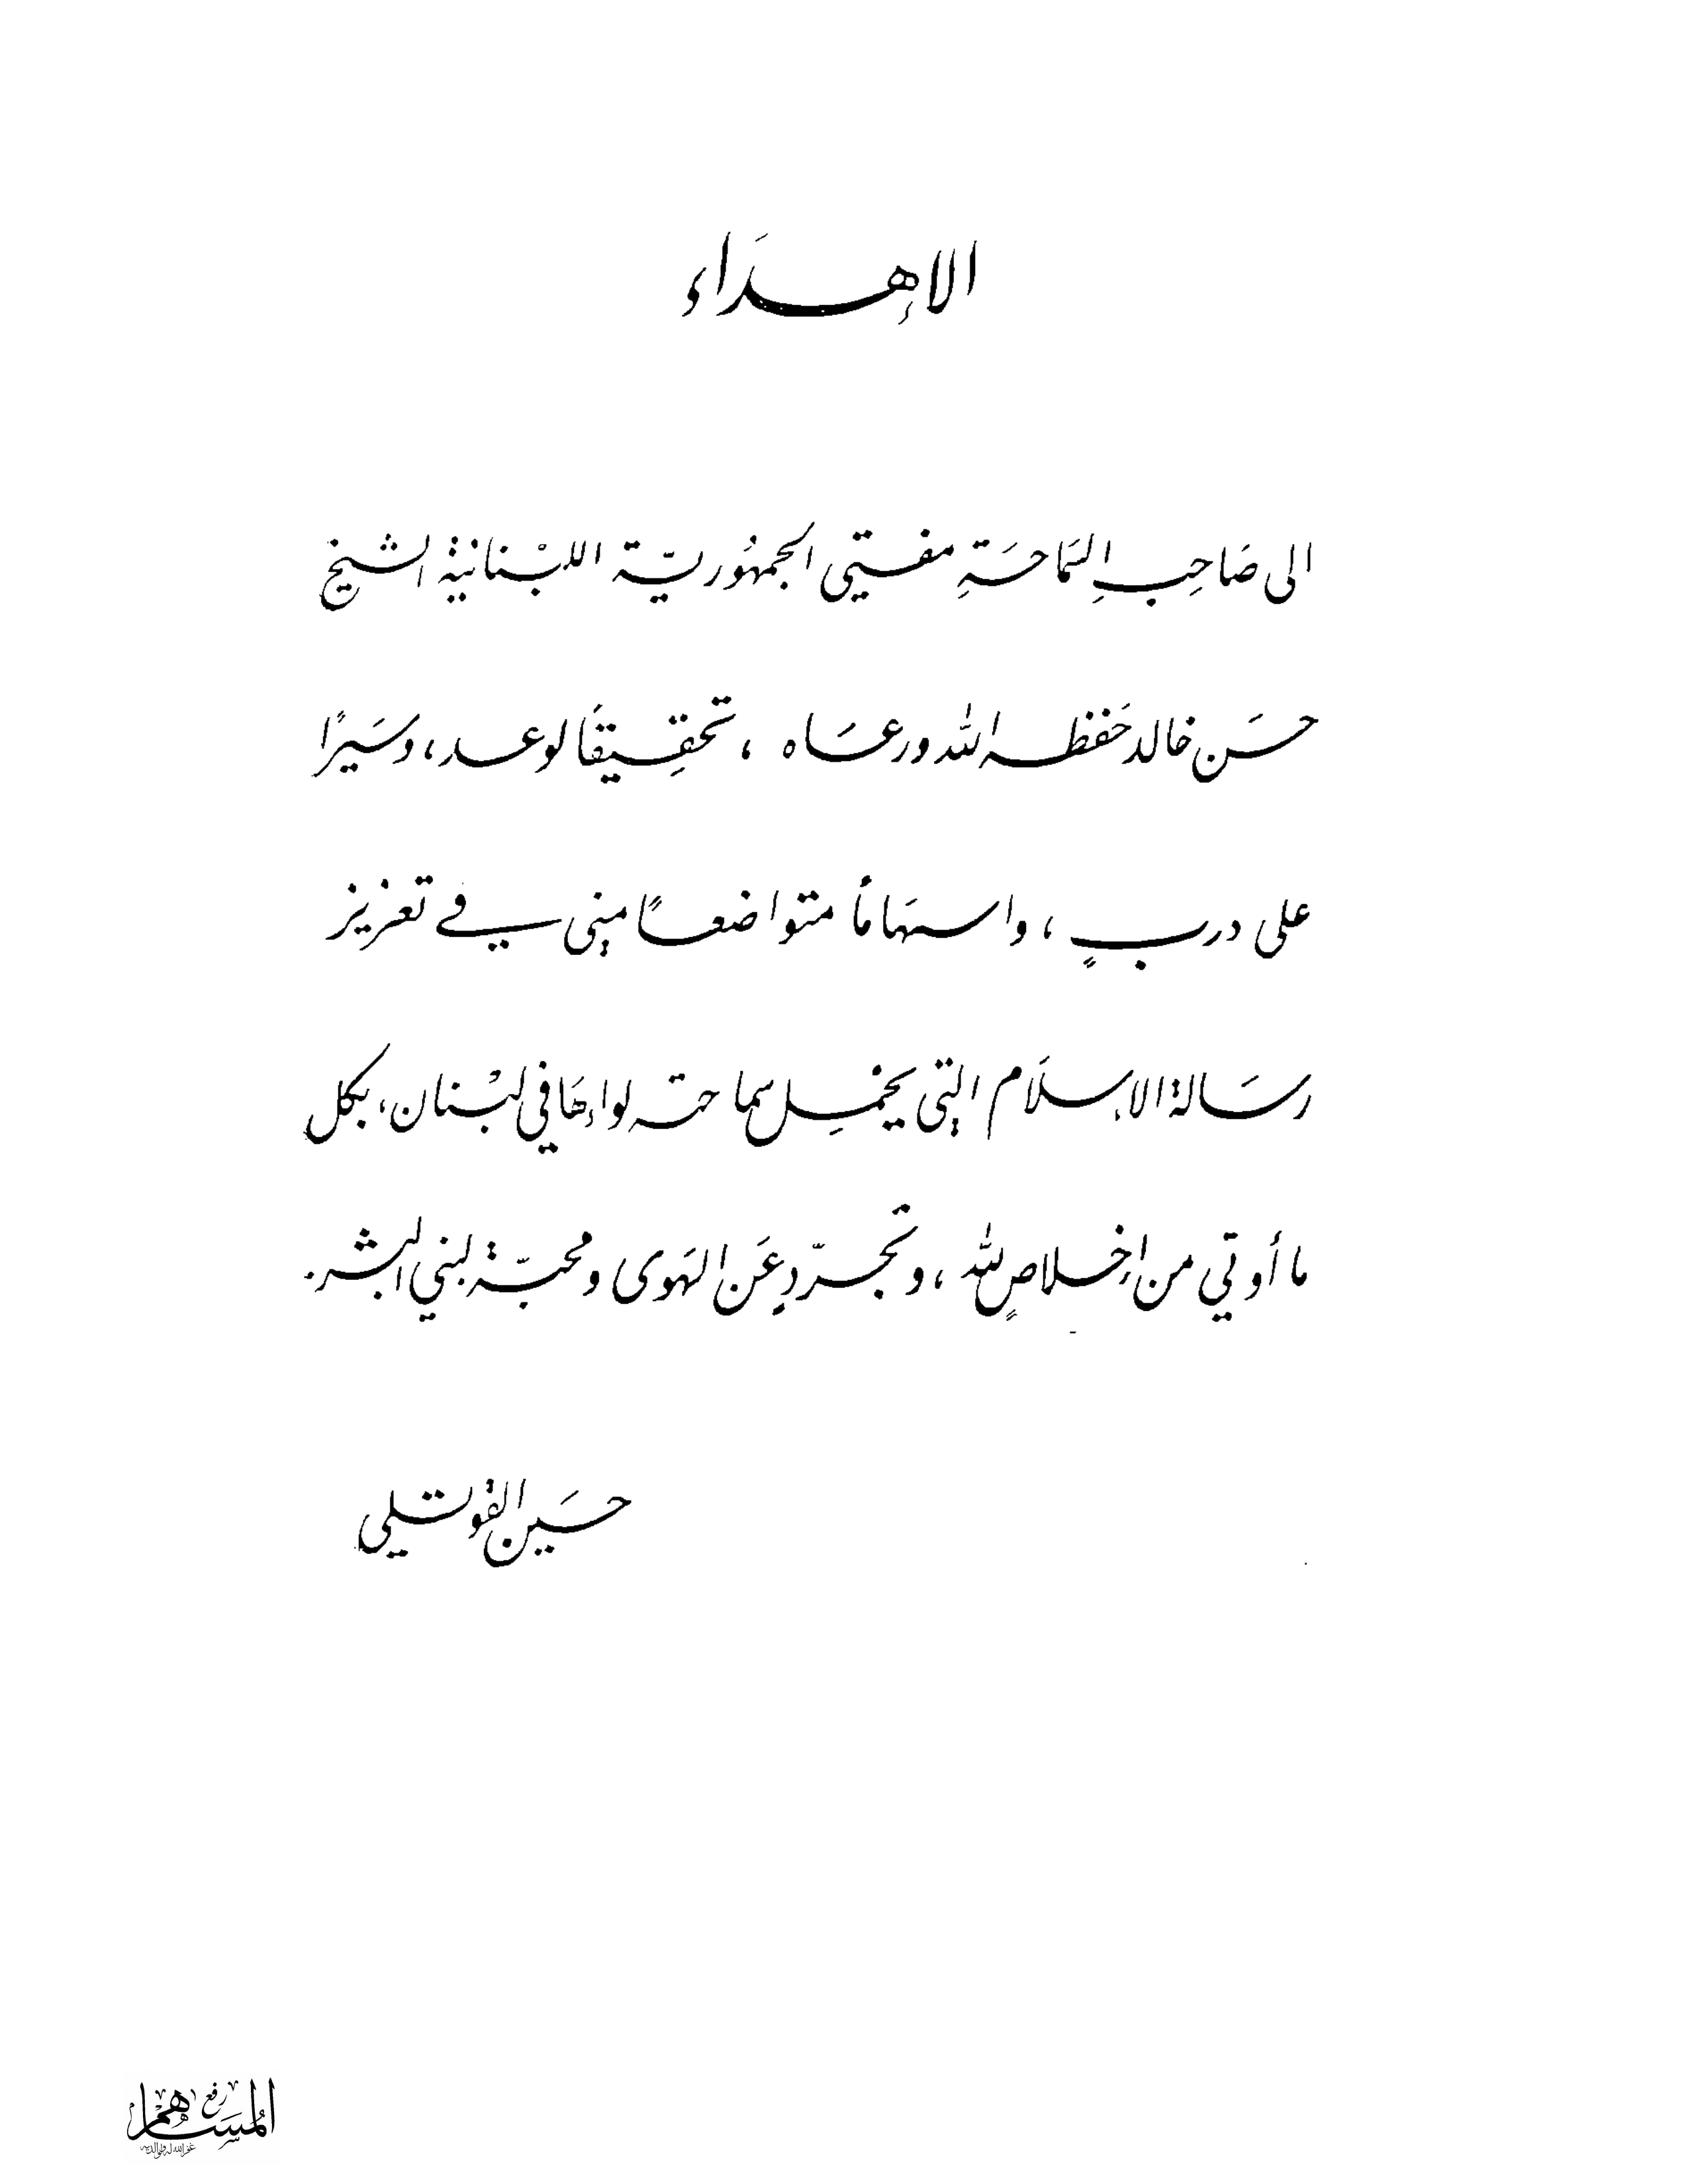 الإهداء
الى صَاحِبِ السَمَاحَةِ مفتي الجمهُوريّة اللبْنانية الشيخ
حسَن خالد حَفظه الله ورعَاه ، تحقِيقًا لوعد ، وسَيرًا
على دربٍ ، واسهَامًا متواضعًا مني في تعزيز
رسَالة الإسلَام التي يحمِل سماحته لواءهَا في لبْنان ، بكل
ما أوتي من إخلاصٍ لله ، وتجرّدٍ عَن الهَوى ومحبّة لبني البشر .
حسَين القوتلي
رفع
المساهم
غفر الله له ولوالديه